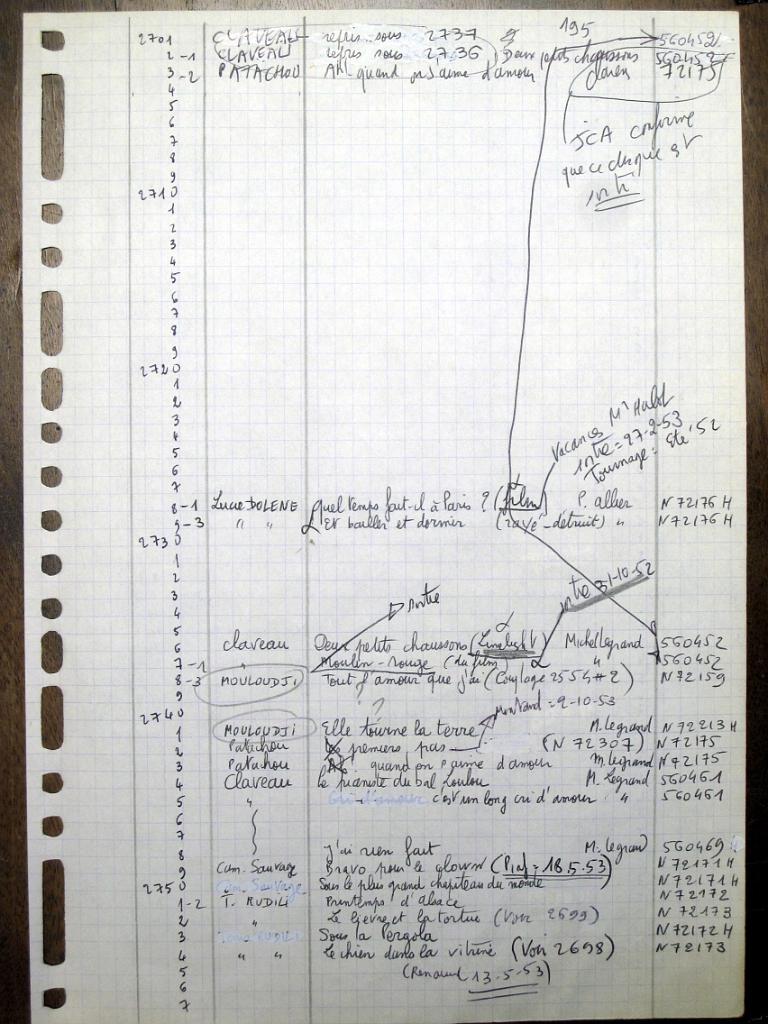 195
2701 CLAVEAU repris sous 2737 560452
2-1 CLAVEAU repris sous 2736 Deux petits chaussons 560452
3-2 PATACHOU Ah! quand on s'aime d'amour 72175
4
5
6 JCA confirme
7 que ce disque st
8 sorti
9
2710
1
2
3
4
5
6
7
8
9
2720
1
2
3 Vacances Mr Hulot
4 sortie = 27-2-53
5 Tournage = Eté '52
6
7
8-1 Lucie DOLENE Quel temps fait-il à Paris ? (film) P. allier N 72176 H
9-3 " " Et bailler et dormir (rayé-détruit) " N 72176 H
2730
1
2 sortie 31-10-52
3 sortie
4
5
6 claveau Deux petits chaussons (Limelight) Michel Legrand 560452
7-1 " Moulin-rouge (du film) " 560452
8-3 MOULOUDJI Tout l'amour que j'ai (Couplage 2554 #2) N 72159
9 ?
2740 Montand = 2-10-53
1 MOULOUDJI Elle tourne la terre M. Legrand N 72213 H
2 Patachou les premiers pas (N 72307) N 72175
3 Patachou Ah! quand on s'aime d'amour M. Legrand N 72175
4 Claveau le pianiste du bal Loulou M. Legrand 560461
5 " c'est un long cri d'amour " 560461
6
7
8 J'ai rien fait M. Legrand 560469
9 Cam. Sauvage Bravo pour le clown (Piaf = 18.5.53) N 72171 H
2750 Cam. Sauvage Sous le plus grand chapiteau du monde N 72171 H
1-2 T. RUDILI Printemps d'alsace N 72172
2 " Le lièvre et la tortue (Voir 2699) N 72173
3 RUDILI Sous la Pergola N 72172 H
4 " " Le chien dans la vitrine (Voir 2698) N 72173
5 (Renaud 13-5-53)
6
7